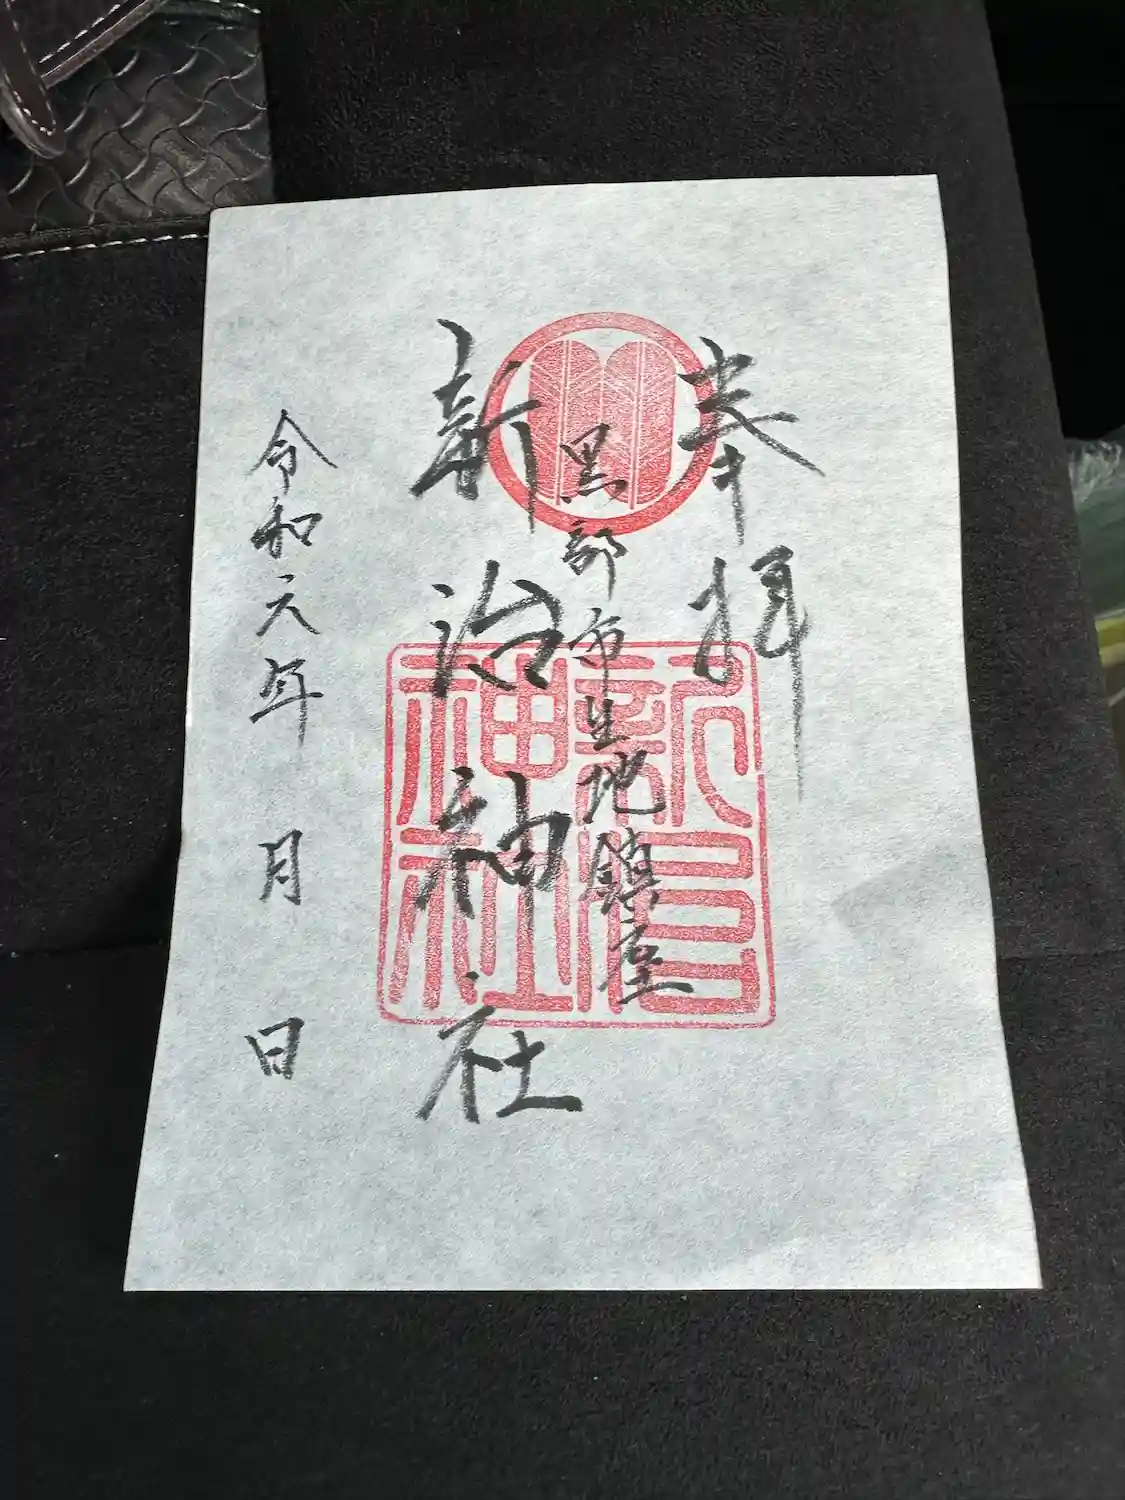 奉拝
黒部市生地鎮座
新治神社
新治神社
令和元年 月 日